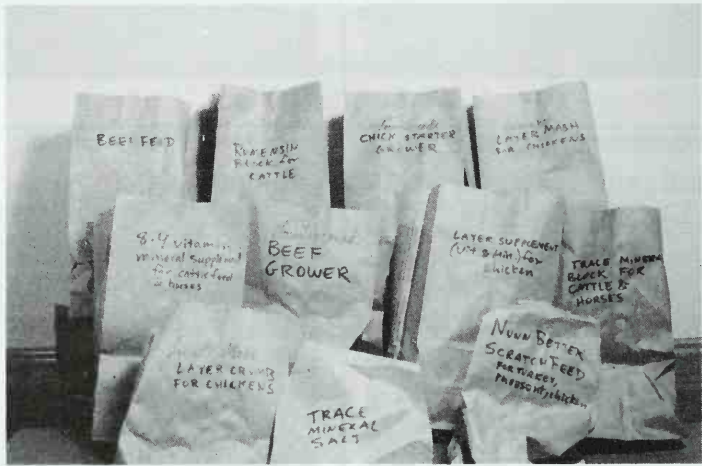 BEEF FEED
RUMENSIN
BLOCK for
CATTLE
CHICK STARTER
GROWER
LAYER MASH
FOR CHICKENS
8-4 vitamin
mineral supplement
for cattle feed
or horses
BEEF
GROWER
LAYER SUPPLEMENT
(Vit & Min.) for
chicken
TRACE MINERAL
BLOCK FOR
CATTLE &
HORSES
LAYER CRUMB
FOR CHICKENS
TRACE
MINERAL
SALT
NUNN BETTER
SCRATCH FEED
FOR TURKEY,
PHEASANT, chicken